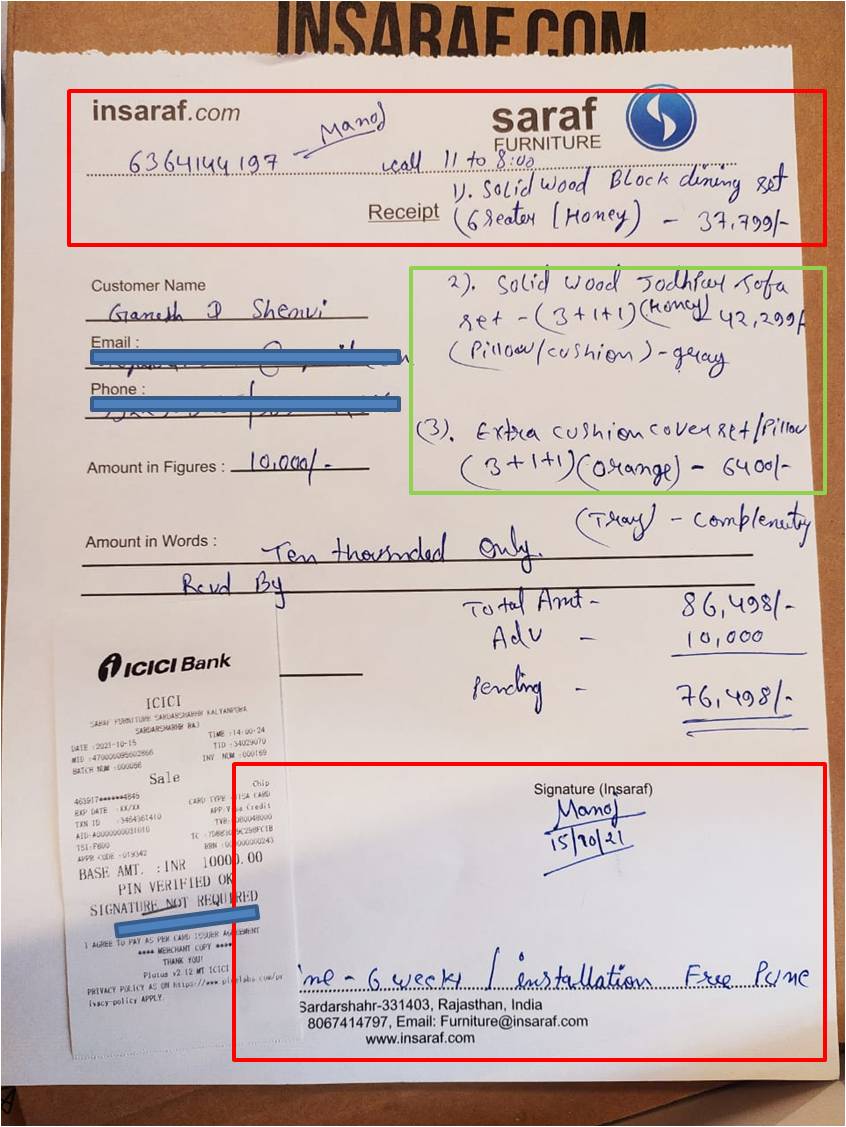 INSARAF.COM
insaraf.com
saraf
FURNITURE
6364144197 - Manoj
call 11 to 8:00
Receipt
1). Solid wood Block dining set
(Greater [Honey) - 37,799/-
Customer Name
Ganesh D Shenvi
2). Solid wood Jodhpur Sofa
set - (3+1+1) (Honey) 42,299/-
(Pillow/cushion) - gray
Email :
Phone :
(3). Extra cushion cover set/Pillow
(3+1+1) (orange) - 6400/-
Amount in Figures : 10,000/-
(Tray) - complenutry
Amount in Words : Ten thounded only.
Rcvd By
Total Amt - 86,498/-
Adv - 10,000
Pending - 76,498/-
ICICI Bank
ICICI
SARAF FURNITURE SARDARSHAHR KALYANPURA
SARDARSHAHR RAJ
DATE :2021-10-15 TIME :14:00:24
MID :470000095602866 TID :34029070
BATCH NUM :000056 INV NUM :000169
Sale
Chip
463917******4845 CARD TYPE :VISA CARD
EXP DATE :XX/XX APP:Visa Credit
TXN ID :3464361410 TVR:
AID:A0000000031010 TC :
TSI:F800 RRN :
APPR CODE :019342
BASE AMT. :INR 10000.00
PIN VERIFIED OK
SIGNATURE NOT REQUIRED
I AGREE TO PAY AS PER CARD ISSUER AGREEMENT
**** MERCHANT COPY ****
THANK YOU!
Plutus v2.12 MT ICICI
PRIVACY POLICY AS ON https://www.pinelabs.com/pr
ivacy-policy APPLY.
Signature (Insaraf)
Manoj
15/10/21
ime - 6 weeks / installation Free Pune
Sardarshahr-331403, Rajasthan, India
8067414797, Email: Furniture@insaraf.com
www.insaraf.com